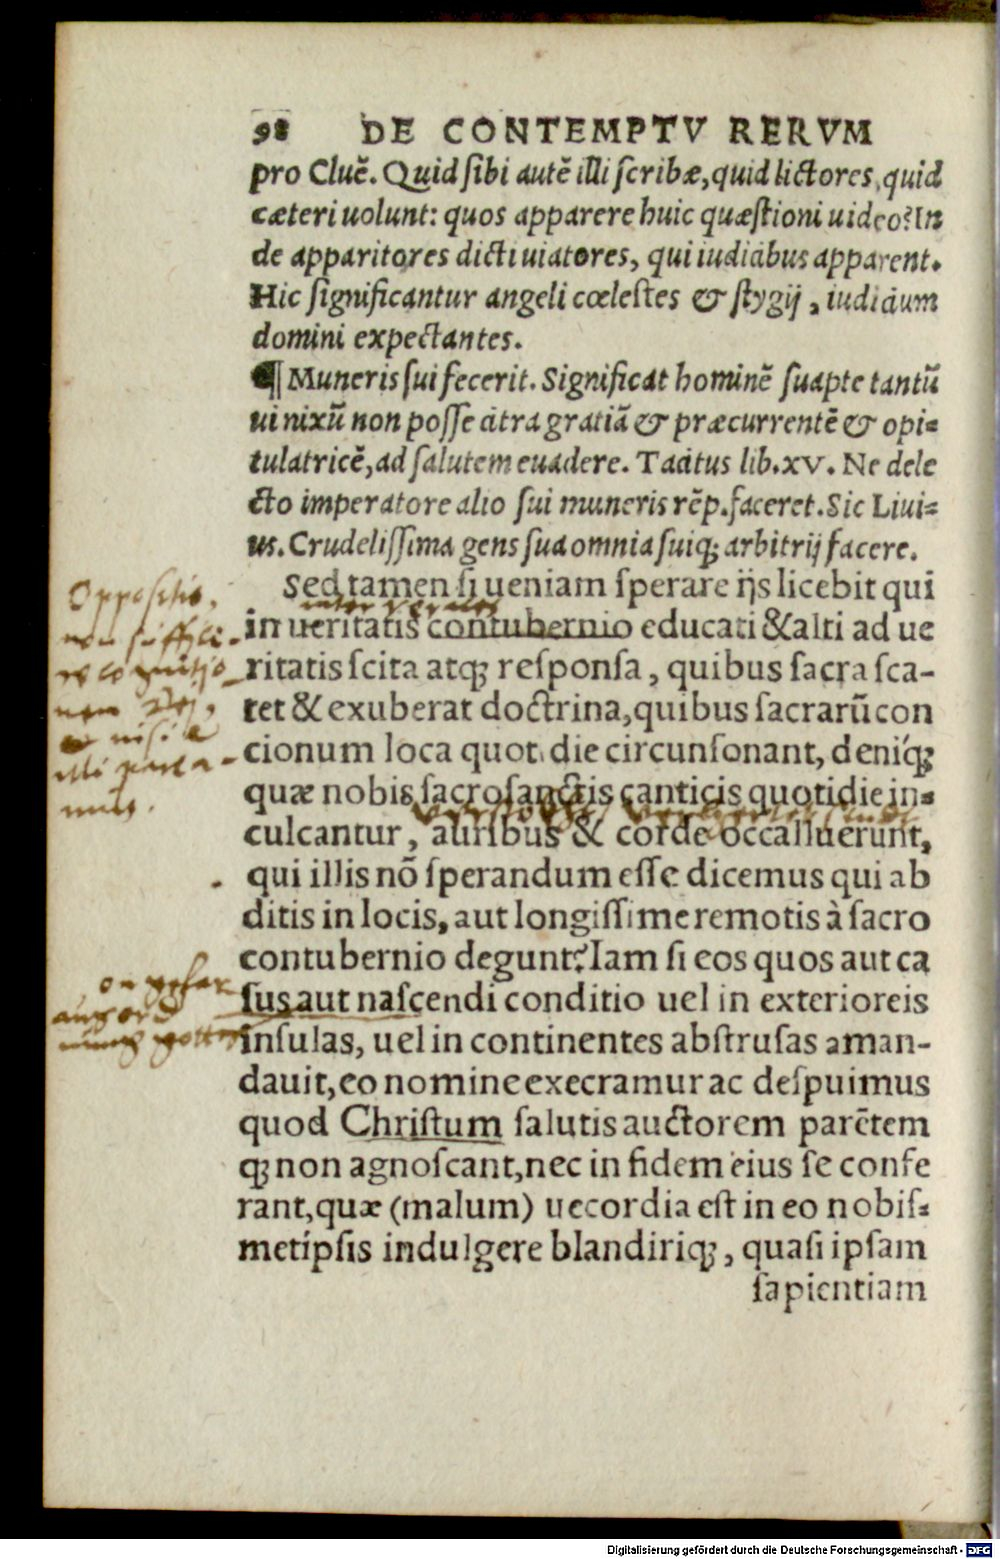 98 DE CONTEMPTV RERVM
pro Cluē. Quid sibi autē illi scribæ, quid lictores, quid
cæteri uolunt: quos apparere huic quæstioni uideo? In
de apparitores dicti uiatores, qui iudicibus apparent.
Hic significantur angeli cœlestes & stygij, iudicium
domini expectantes.
¶ Muneris sui fecerit. Significat hominē suapte tantū
ui nixū non posse citra gratiā & præcurrentē & opi=
tulatricē, ad salutem euadere. Tacitus lib. xv. Ne dele
cto imperatore alio sui muneris rēp. faceret. Sic Liui=
us. Crudelissima gens sua omnia suiq; arbitrij facere.
Sed tamen si ueniam sperare ijs licebit qui
in ueritatis contubernio educati & alti ad ue
ritatis scita atq; responsa, quibus sacra sca-
tet & exuberat doctrina, quibus sacrarū con
cionum loca quot die circunsonant, deníq;
quæ nobis sacrosanctis canticis quotidie in=
culcantur, auribus & corde occalluerunt,
qui illis nō sperandum esse dicemus qui ab
ditis in locis, aut longissime remotis à sacro
contubernio degunt? Iam si eos quos aut ca
sus aut nascendi conditio uel in exterioreis
insulas, uel in continentes abstrusas aman-
dauit, eo nomine execramur ac despuimus
quod Christum salutis auctorem parētem
q; non agnoscant, nec in fidem eius se confe
rant, quæ (malum) uecordia est in eo nobis=
metípsis indulgere blandiriq;, quasi ipsam
sapientiam
Oppositio,
Digitalisierung gefördert durch die Deutsche Forschungsgemeinschaft - DFG